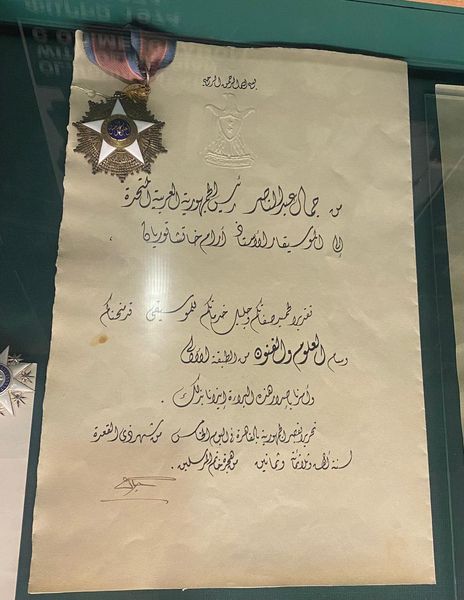 بسم الله الرحمن الرحيم
من جمال عبد الناصر رئيس الجمهورية العربية المتحدة
إلى الموسيقار الأستاذ آرام خاتشاتوريان
تقديرا لحميد صفاتكم وجليل خدماتكم للموسيقى قد منحناكم
وسام العلوم والفنون من الطبقة الأولى
وأمرنا بإصدار هذه البراءة إيذانا بذلك .
تحريرا بقصر الجمهورية بالقاهرة في اليوم الخامس من شهر ذي القعدة
لسنة ألف وثلاثمائة وثمانين من هجرة خاتم المرسلين .